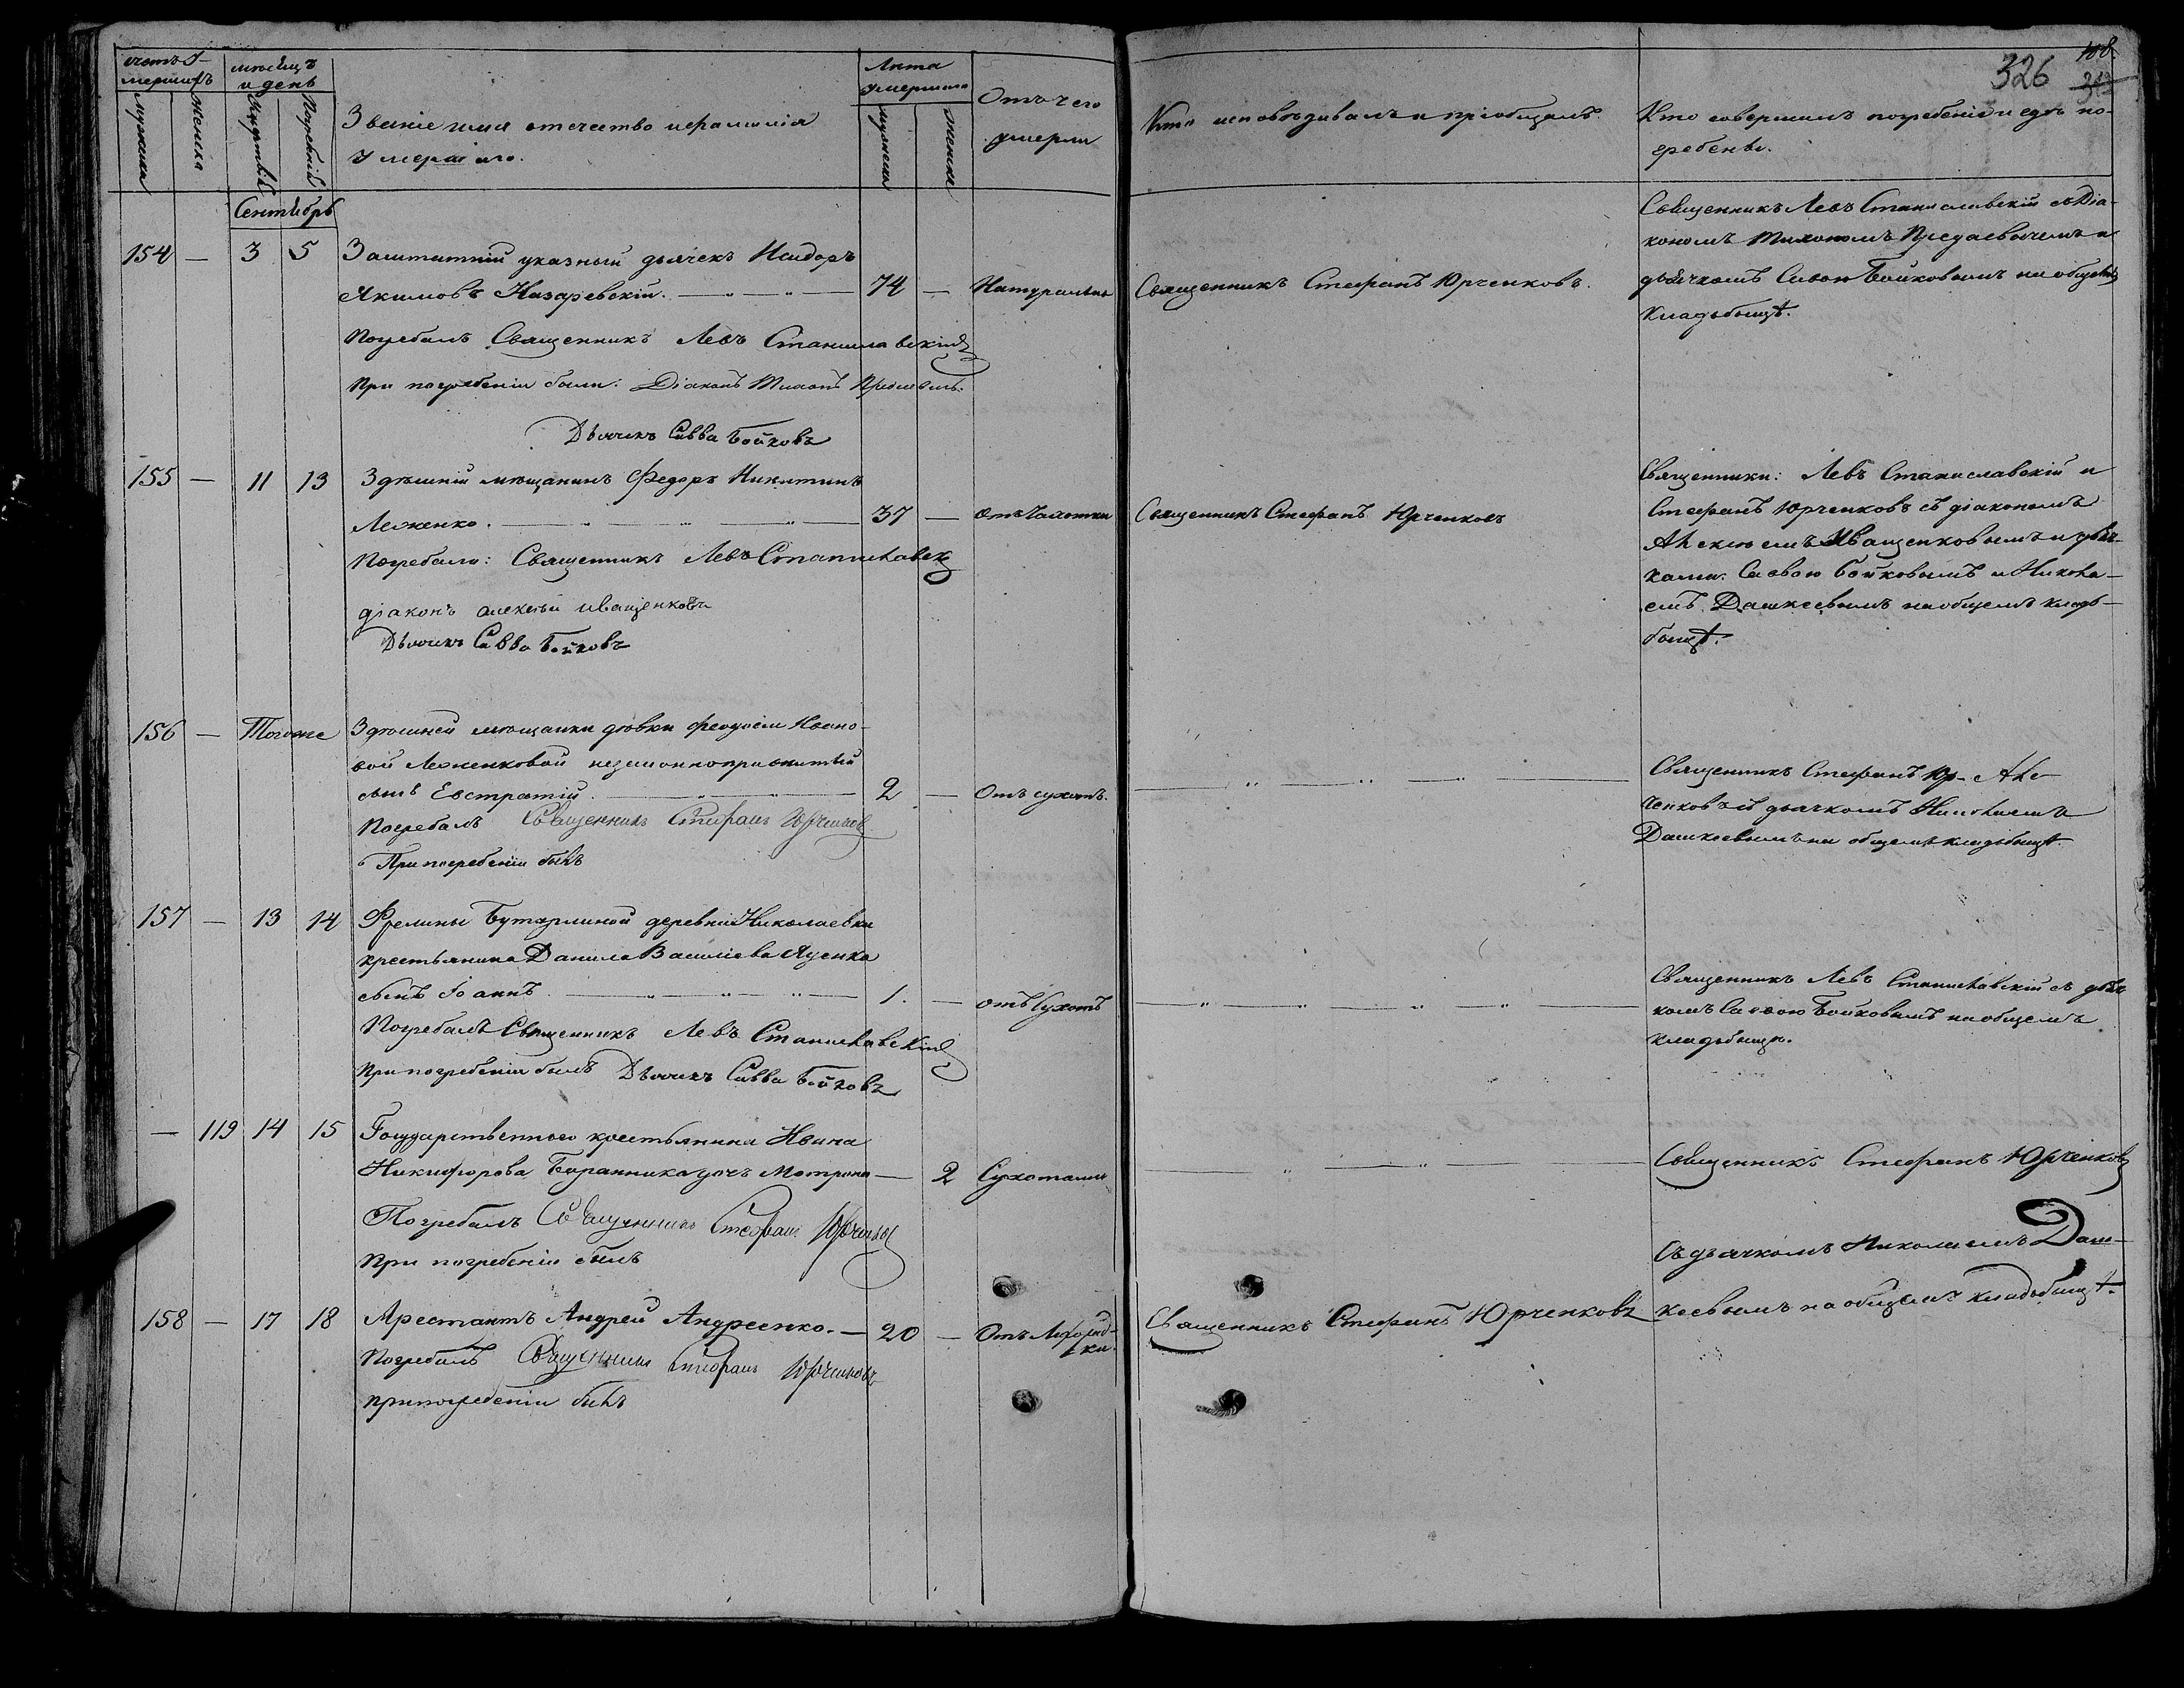 326
108.
счетъ У-
мершихъ
Мужеска
Женска
месяцъ
и день
Смерти
Погребенія
Званіе имя отечество и фамилія
Умершаго.
Лета
Умершаго
мужеска
женска
Отъ чего
умерли
Кто исповѣдывалъ и пріобщалъ.
Кто совершилъ погребеніе и гдѣ по-
гребены.
Сентябрь
154 — 3 5 Заштатній указный дьячекъ Исидоръ
Якимовъ Назаревскій. — 74 — Натурально
Погребалъ Священникъ Левъ Станиславскій
При погребеніи были: Діаконъ Тихонъ
Дьячекъ Савва Бойковъ
Священникъ Стефанъ Юрченковъ.
Священникъ Левъ Станиславскій съ Діа-
кономъ Тихономъ и
дьячкомъ Савою Бойковымъ на общемъ
Кладьбищѣ.
155 — 11 13 Здѣшній мѣщанинъ Федоръ Никитинъ
Леженко. — 37 — Отъ Чахотки
Погребали: Священникъ Левъ Станиславскій
діаконъ алексѣй иващенковъ
Дьячекъ Савва Бойковъ
Священникъ Стефанъ Юрченковъ
Священники: Левъ Станиславскій и
Стефанъ Юрченковъ съ діакономъ
Алексѣемъ Иващенковымъ и дьяч-
ками: Савою Бойковымъ и Никола-
емъ Дашкеевымъ на общемъ кладь-
бищѣ.
156 — Тогоже Здѣшней мѣщанки дѣвки Феодосіи Ивано-
вой Леженковой незаконноприжитый
сынъ Евстратій. — 2 — Отъ сухотъ.
Погребалъ Священникъ Стефанъ Юрченковъ
При погребеніи былъ
Священникъ Стефанъ Юр-
ченковъ съ дьячкомъ Николаемъ
Дашкеевымъ на общемъ кладьбищѣ.
157 — 13 14 Фрелины Бутурлиной деревни Николаевки
крестьянина Данила Василіева Яценка
сынъ Іоаннъ. — 1. — отъ Сухотъ
Погребалъ Священникъ Левъ Станиславскій
При погребеніи былъ Дьячекъ Савва Бойковъ
Священникъ Левъ Станиславскій съ дьяч-
комъ Савою Бойковымъ на общемъ
кладьбищѣ.
— 119 14 15 Государственнаго крестьянина Ивана
Никифорова Баранника дочь Матрона — 2 Сухотами
Погребалъ Священникъ Стефанъ Юрченковъ
При погребеніи былъ
Священникъ Стефанъ Юрченковъ
Съ дьячкомъ Николаемъ Даш-
кеевымъ на общемъ кладьбищѣ.
158 — 17 18 Арестантъ Андрей Андреенко. — 20 — Отъ Лихорад-
ки.
Погребалъ Священникъ Стефанъ Юрченковъ
При погребеніи былъ
Священникъ Стефанъ Юрченковъ